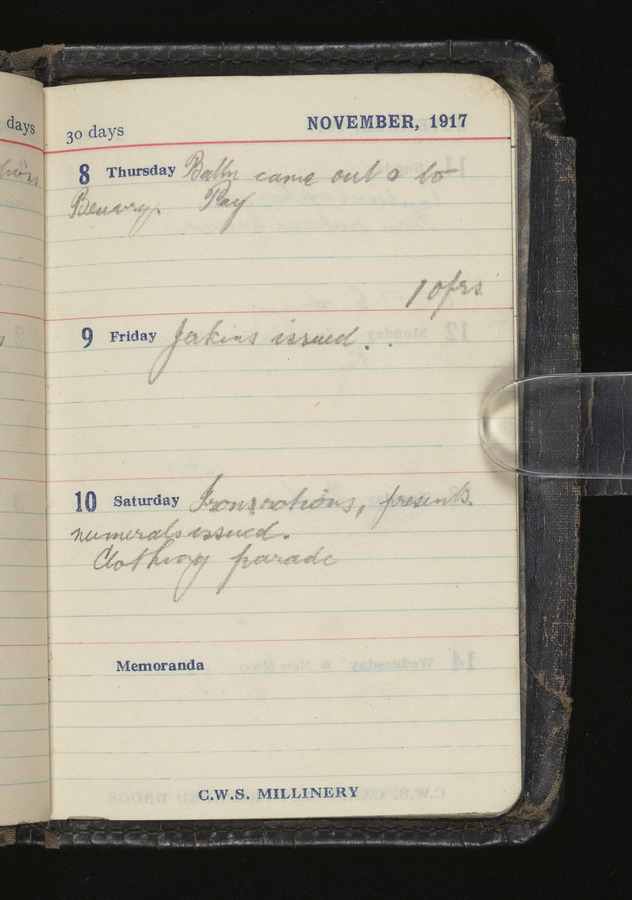 days
30 days
NOVEMBER, 1917
8 Thursday Battn came out & to
Beuvry. Pay
10 frs
9 Friday Jerkins issued . .
10 Saturday Iron rations, presents
numerals issued.
Clothing parade
Memoranda
C.W.S. MILLINERY